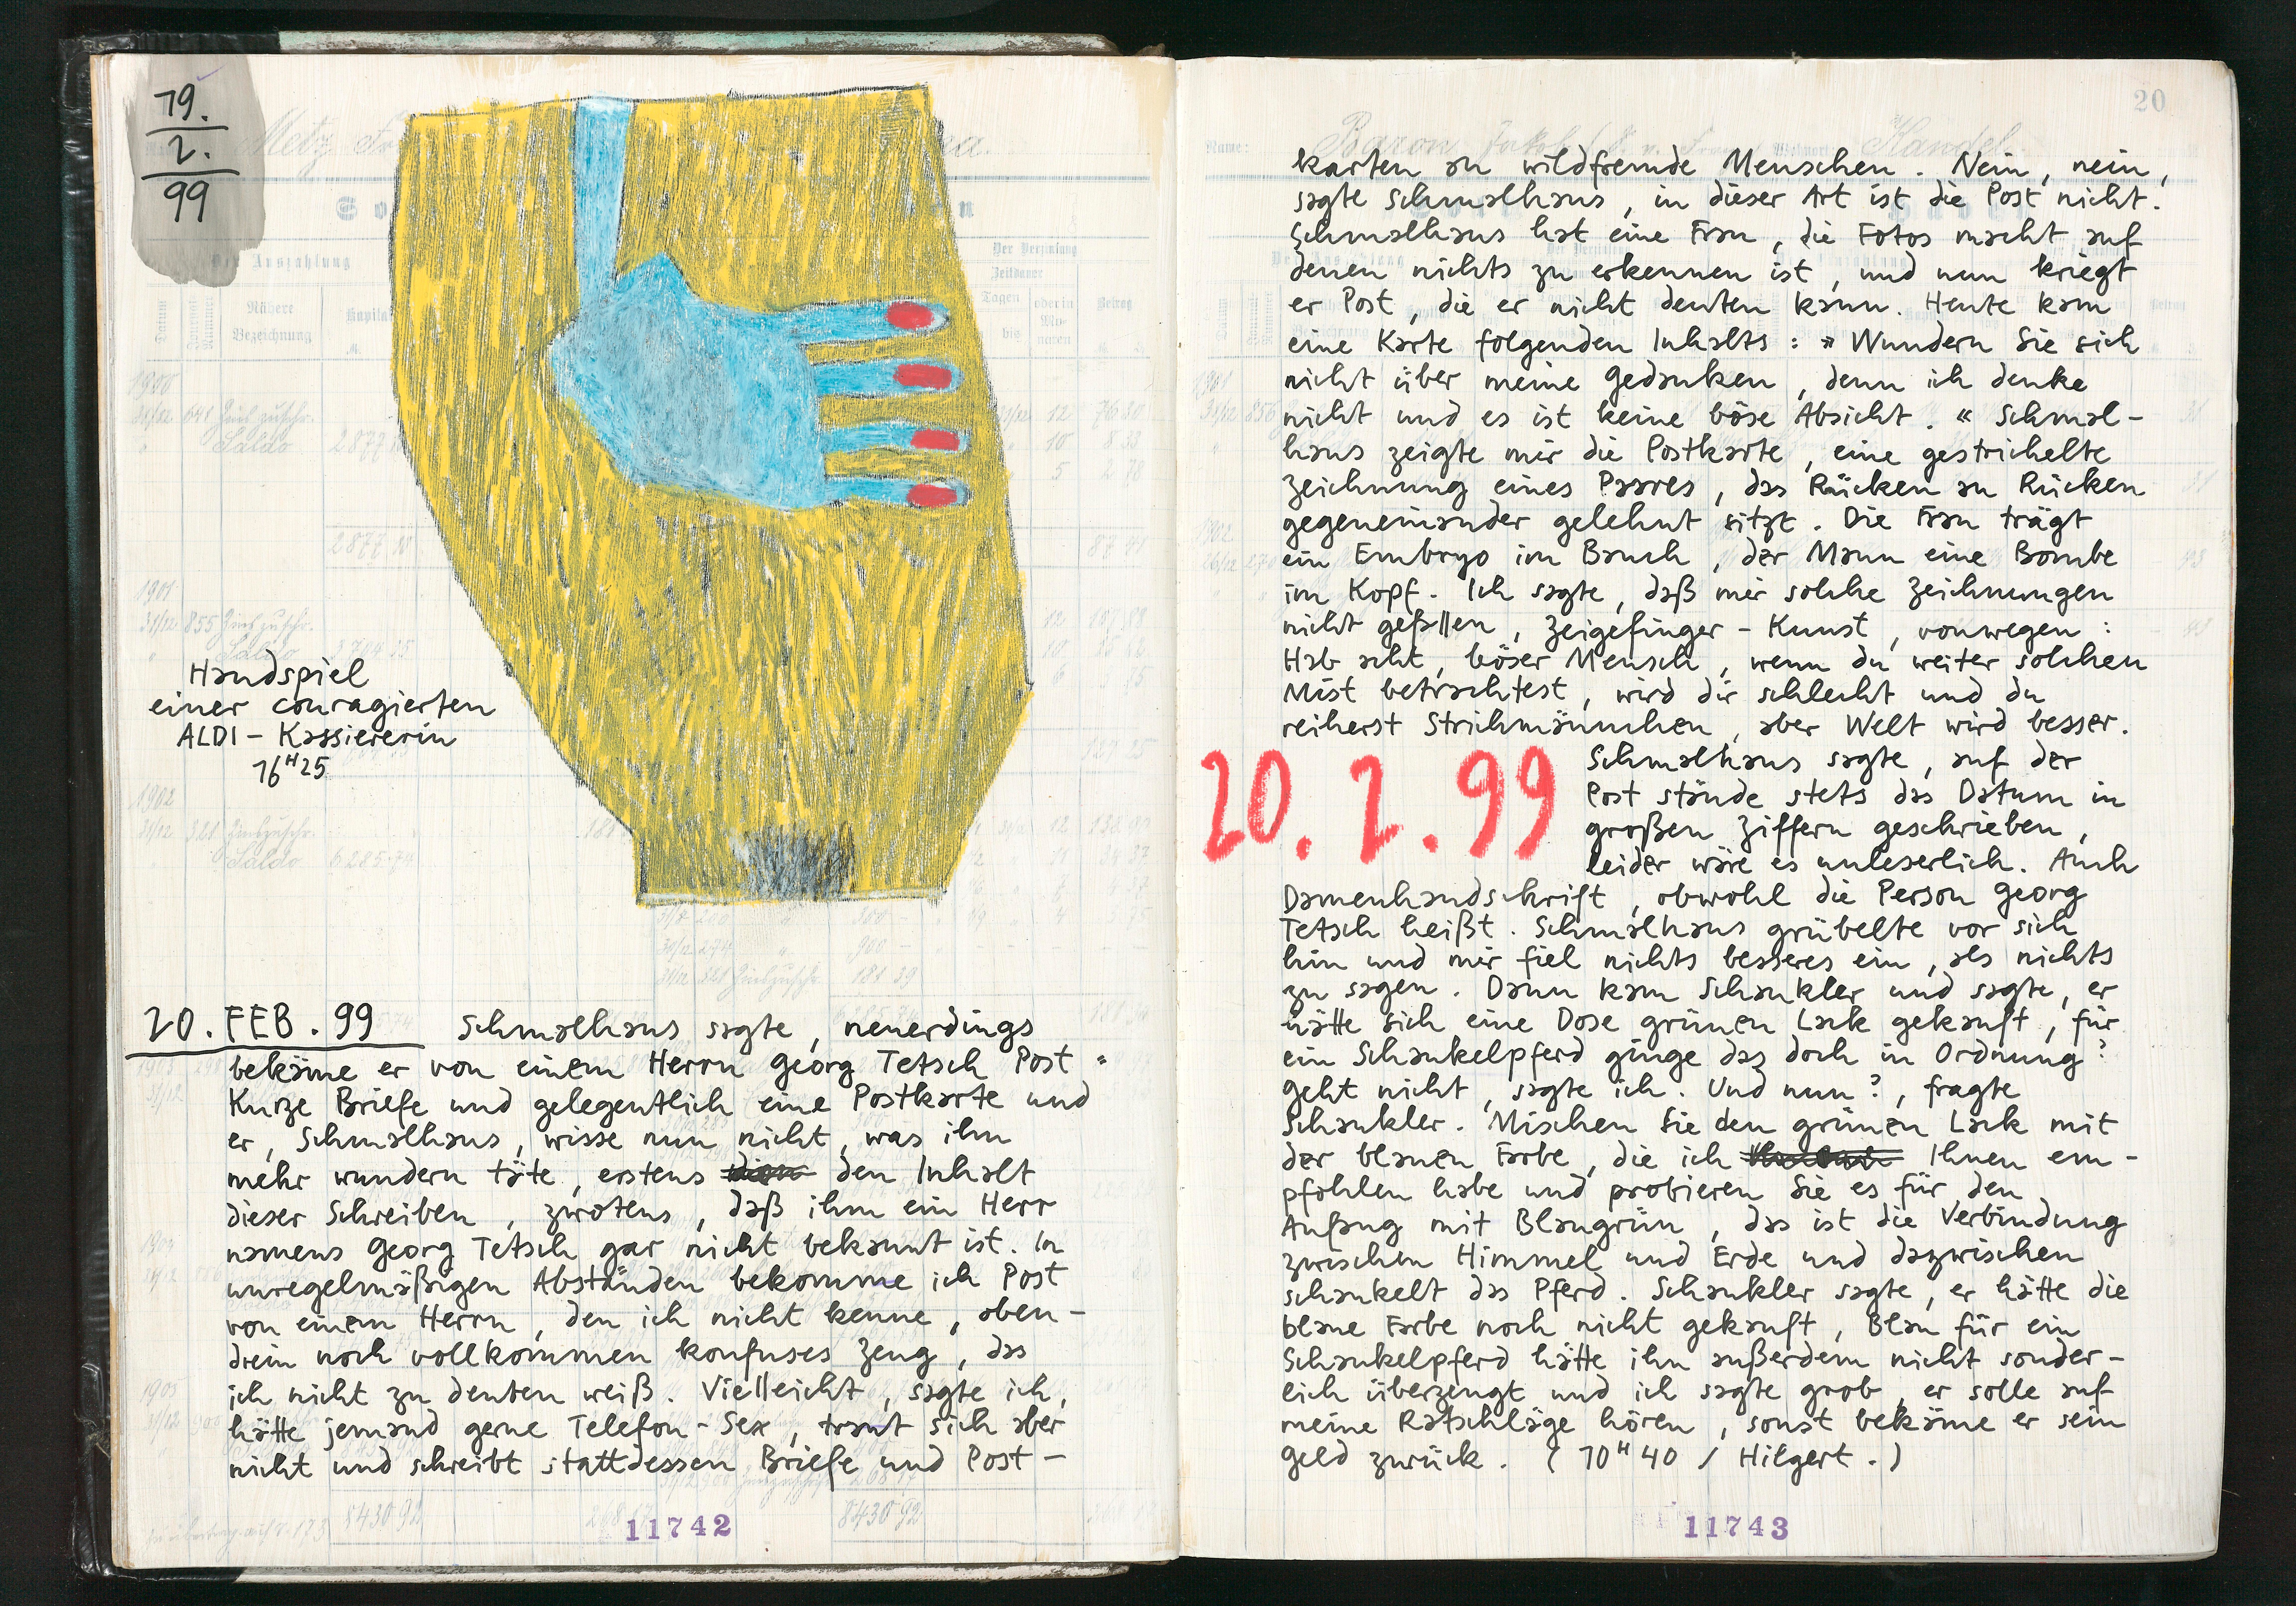 19.
2.
99
Handspiel
einer couragierten
ALDI - Kassiererin
16H25
20. FEB. 99 Schmalhaus sagte, neuerdings
bekäme er von einem Herrn Georg Tetsch Post.
Kurze Briefe und gelegentlich eine Postkarte und
er, Schmalhaus, wisse nun nicht, was ihn
mehr wundern täte, erstens den Inhalt
dieser Schreiben, zwotens, daß ihm ein Herr
namens Georg Tetsch gar nicht bekannt ist. In
unregelmäßigen Abständen bekomme ich Post
von einem Herrn, den ich nicht kenne, oben-
drein noch vollkommen konfuses Zeug, das
ich nicht zu deuten weiß. Vielleicht, sagte ich,
hätte jemand gerne Telefon-Sex, traut sich aber
nicht und schreibt stattdessen Briefe und Post-
11742
20
karten an wildfremde Menschen. Nein, nein,
sagte Schmalhaus, in dieser Art ist die Post nicht.
Schmalhaus hat eine Frau, die Fotos macht auf
denen nichts zu erkennen ist, und nun kriegt
er Post, die er nicht deuten kann. Heute kam
eine Karte folgenden Inhalts: »Wundern Sie sich
nicht über meine Gedanken, denn ich denke
nicht und es ist keine böse Absicht.« Schmal-
haus zeigte mir die Postkarte, eine gestrichelte
Zeichnung eines Paares, das Rücken an Rücken
gegeneinander gelehnt sitzt. Die Frau trägt
ein Embryo im Bauch, der Mann eine Bombe
im Kopf. Ich sagte, daß mir solche Zeichnungen
nicht gefallen, Zeigefinger-Kunst, vonwegen:
Hab acht, böser Mensch, wenn du weiter solchen
Mist betrachtest, wird dir schlecht und du
reiherst Strichmännchen, aber Welt wird besser.
20. 2. 99
Schmalhaus sagte, auf der
Post stände stets das Datum in
großen Ziffern geschrieben,
leider wäre es unleserlich. Auch
Damenhandschrift, obwohl die Person Georg
Tetsch heißt. Schmalhaus grübelte vor sich
hin und mir fiel nichts besseres ein, als nichts
zu sagen. Dann kam Schaukler und sagte, er
hätte sich eine Dose grünen Lack gekauft, für
ein Schaukelpferd ginge das doch in Ordnung?
Geht nicht, sagte ich. Und nun?, fragte
Schaukler. Mischen Sie den grünen Lack mit
der blauen Farbe, die ich Ihnen em-
pfohlen habe und probieren Sie es für den
Anfang mit Blaugrün, das ist die Verbindung
zwischen Himmel und Erde und dazwischen
schaukelt das Pferd. Schaukler sagte, er hätte die
blaue Farbe noch nicht gekauft, Blau für ein
Schaukelpferd hätte ihn außerdem nicht sonder-
lich überzeugt und ich sagte grob, er solle auf
meine Ratschläge hören, sonst bekäme er sein
Geld zurück. (10H40 / Hilgert.)
11743